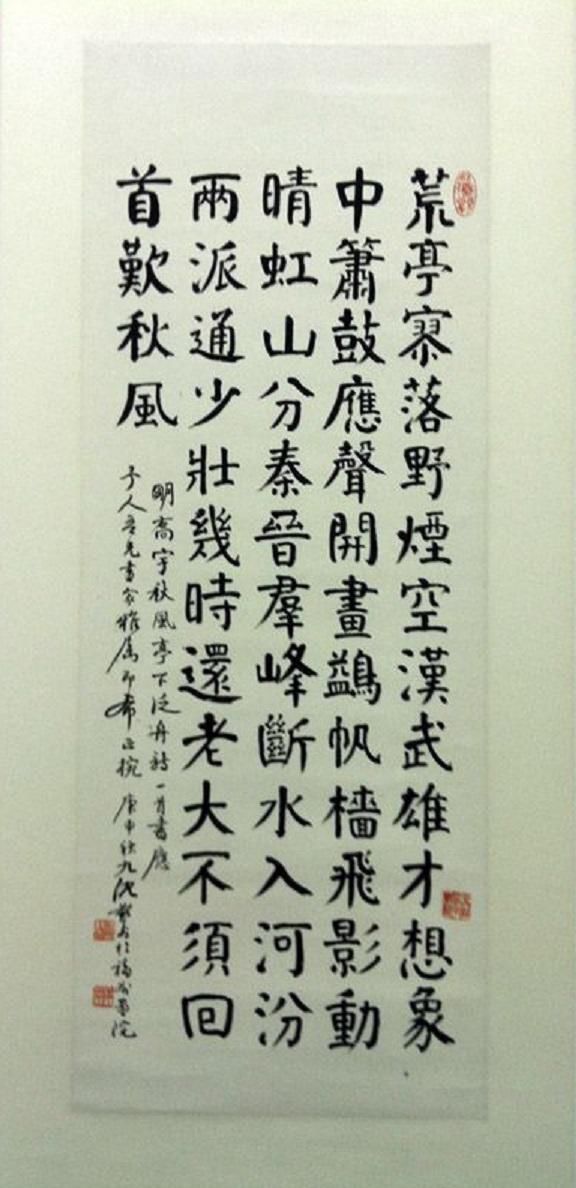 荒亭寥落野煙空漢武雄才想象
中簫鼓應聲開畫鷁帆檣飛影動
晴虹山分秦晉羣峰斷水入河汾
兩派通少壯幾時還老大不須回
首歎秋風
明高宇秋風亭下泛舟詩一首書應
子人吾兄書家雅屬即希正捥 庚申 九沈 於福州畫院